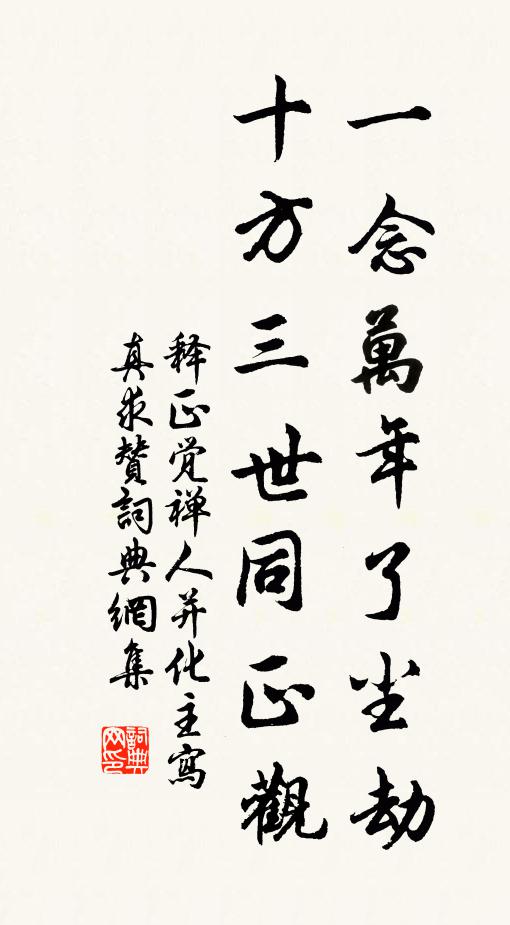 一念萬年了尘劫
十方三世同正觀
释正觉禅人并化主寫
真求賛詞典網集
詞典网印